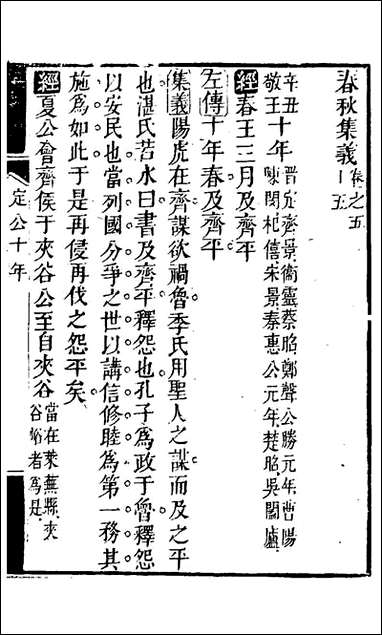 春秋集義卷之五十五
辛丑
敬王十年晉定齊景衞靈蔡昭鄭聲公勝元年曹陽
陳閔杞僖宋景秦惠公元年楚昭吳闔廬
經春王三月及齊平
左傳十年春及齊平
集義陽虎在齊謀欲禍魯季氏用聖人之謀而及之平
也湛氏若水曰書及齊平釋怨也孔子為政于魯釋怨
以安民也當列國分爭之世以講信修睦為第一務其
施為如此于是再侵再伐之怨平矣
經夏公會齊侯于夾谷公至自夾谷當在萊蕪縣夾
谷峪者為是
定公十年